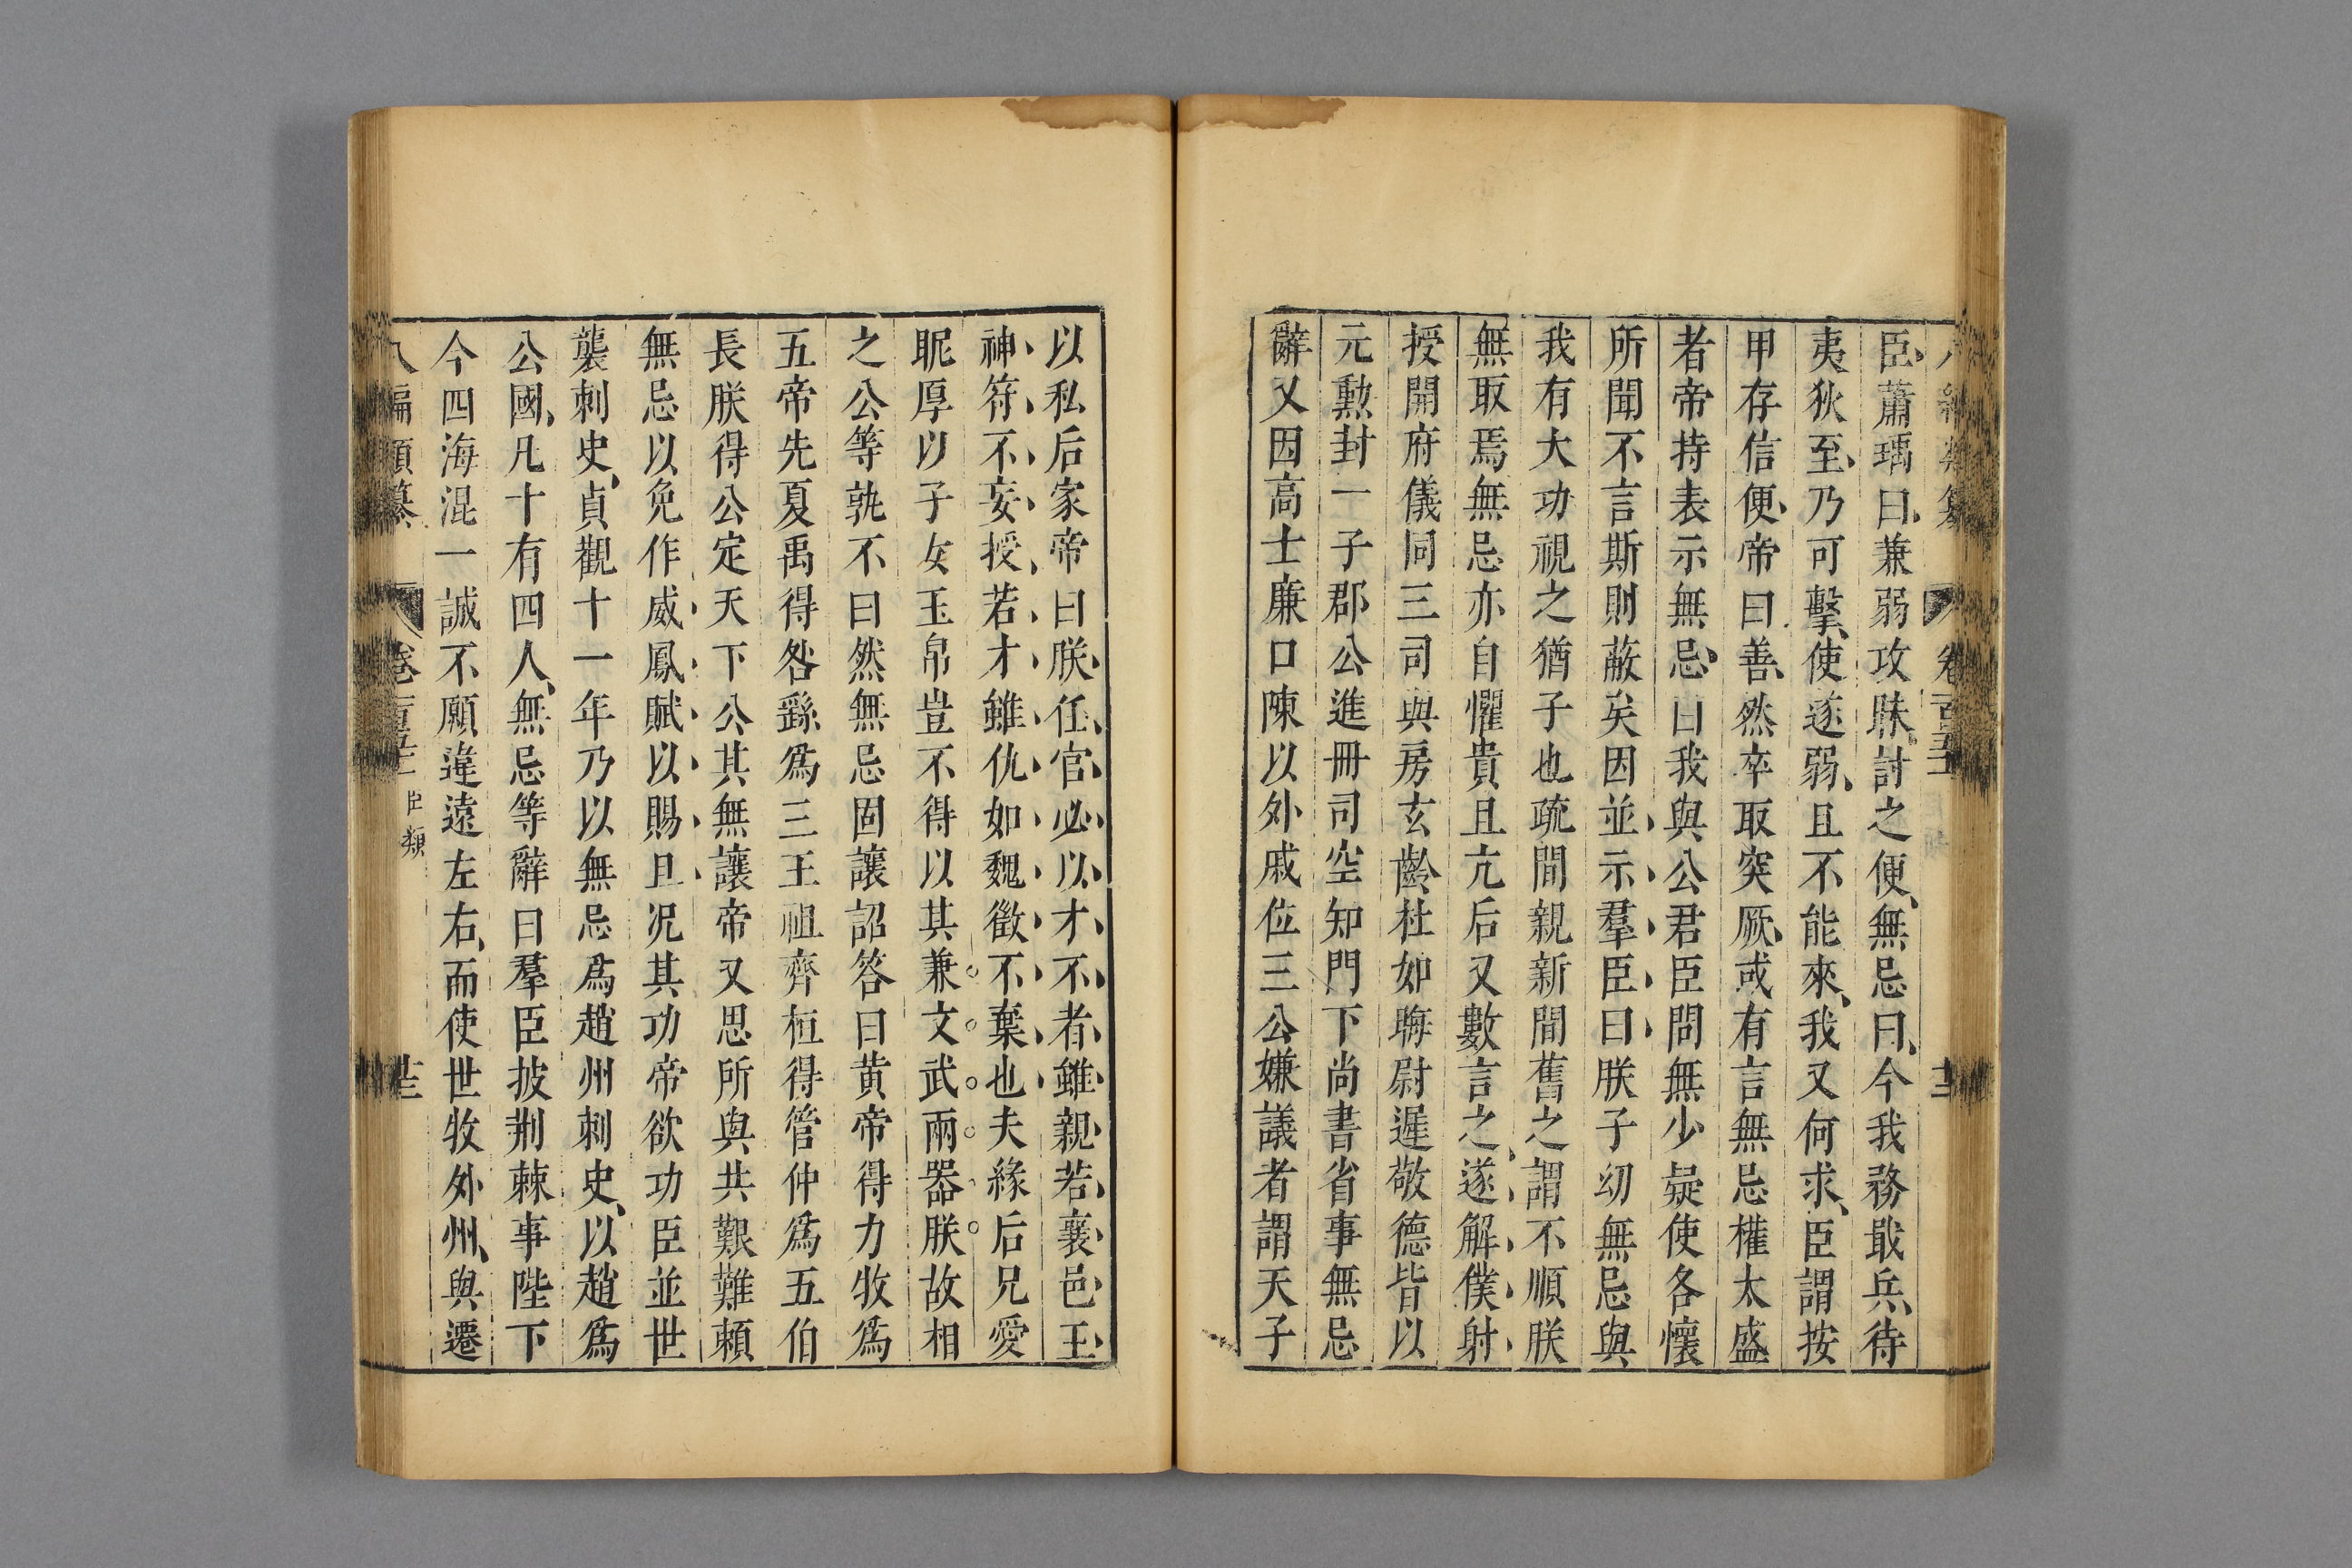 臣蕭瑀曰兼弱攻昧討之便無忌曰今我務戢兵待
夷狄至乃可擊使遂弱且不能來我又何求臣謂按
甲存信便帝曰善然卒取突厥或有言無忌權太盛
者帝持表示無忌曰我與公君臣問無少疑使各懷
所聞不言斯則蔽矣因並示羣臣曰朕子幼無忌與
我有大功視之猶子也疏間親新間舊之謂不順朕
無取焉無忌亦自懼貴且亢后又數言之遂解僕射
授開府儀同三司與房玄齡杜如晦尉遲敬德皆以
元勲封一子郡公進冊司空知門下尚書省事無忌
辭又因高士廉口陳以外戚位三公嫌議者謂天子
以私后家帝曰朕任官必以才不者雖親若襄邑王
神符不妄授若才雖仇如魏徵不棄也夫緣后兄愛
昵厚以子女玉帛豈不得以其兼文武兩器朕故相
之公等孰不曰然無忌固讓詔答曰黄帝得力牧爲
五帝先夏禹得咎繇爲三王祖齊桓得管仲爲五伯
長朕得公定天下公其無讓帝又思所與共艱難賴
無忌以免作威鳳賦以賜且况其功帝欲功臣並世
襲刺史貞觀十一年乃以無忌爲趙州刺史以趙爲
公國凡十有四人無忌等辭曰羣臣披荆棘事陛下
今四海混一誠不願違遠左右而使世牧外州與遷
八編類纂 卷一百五十 臣類